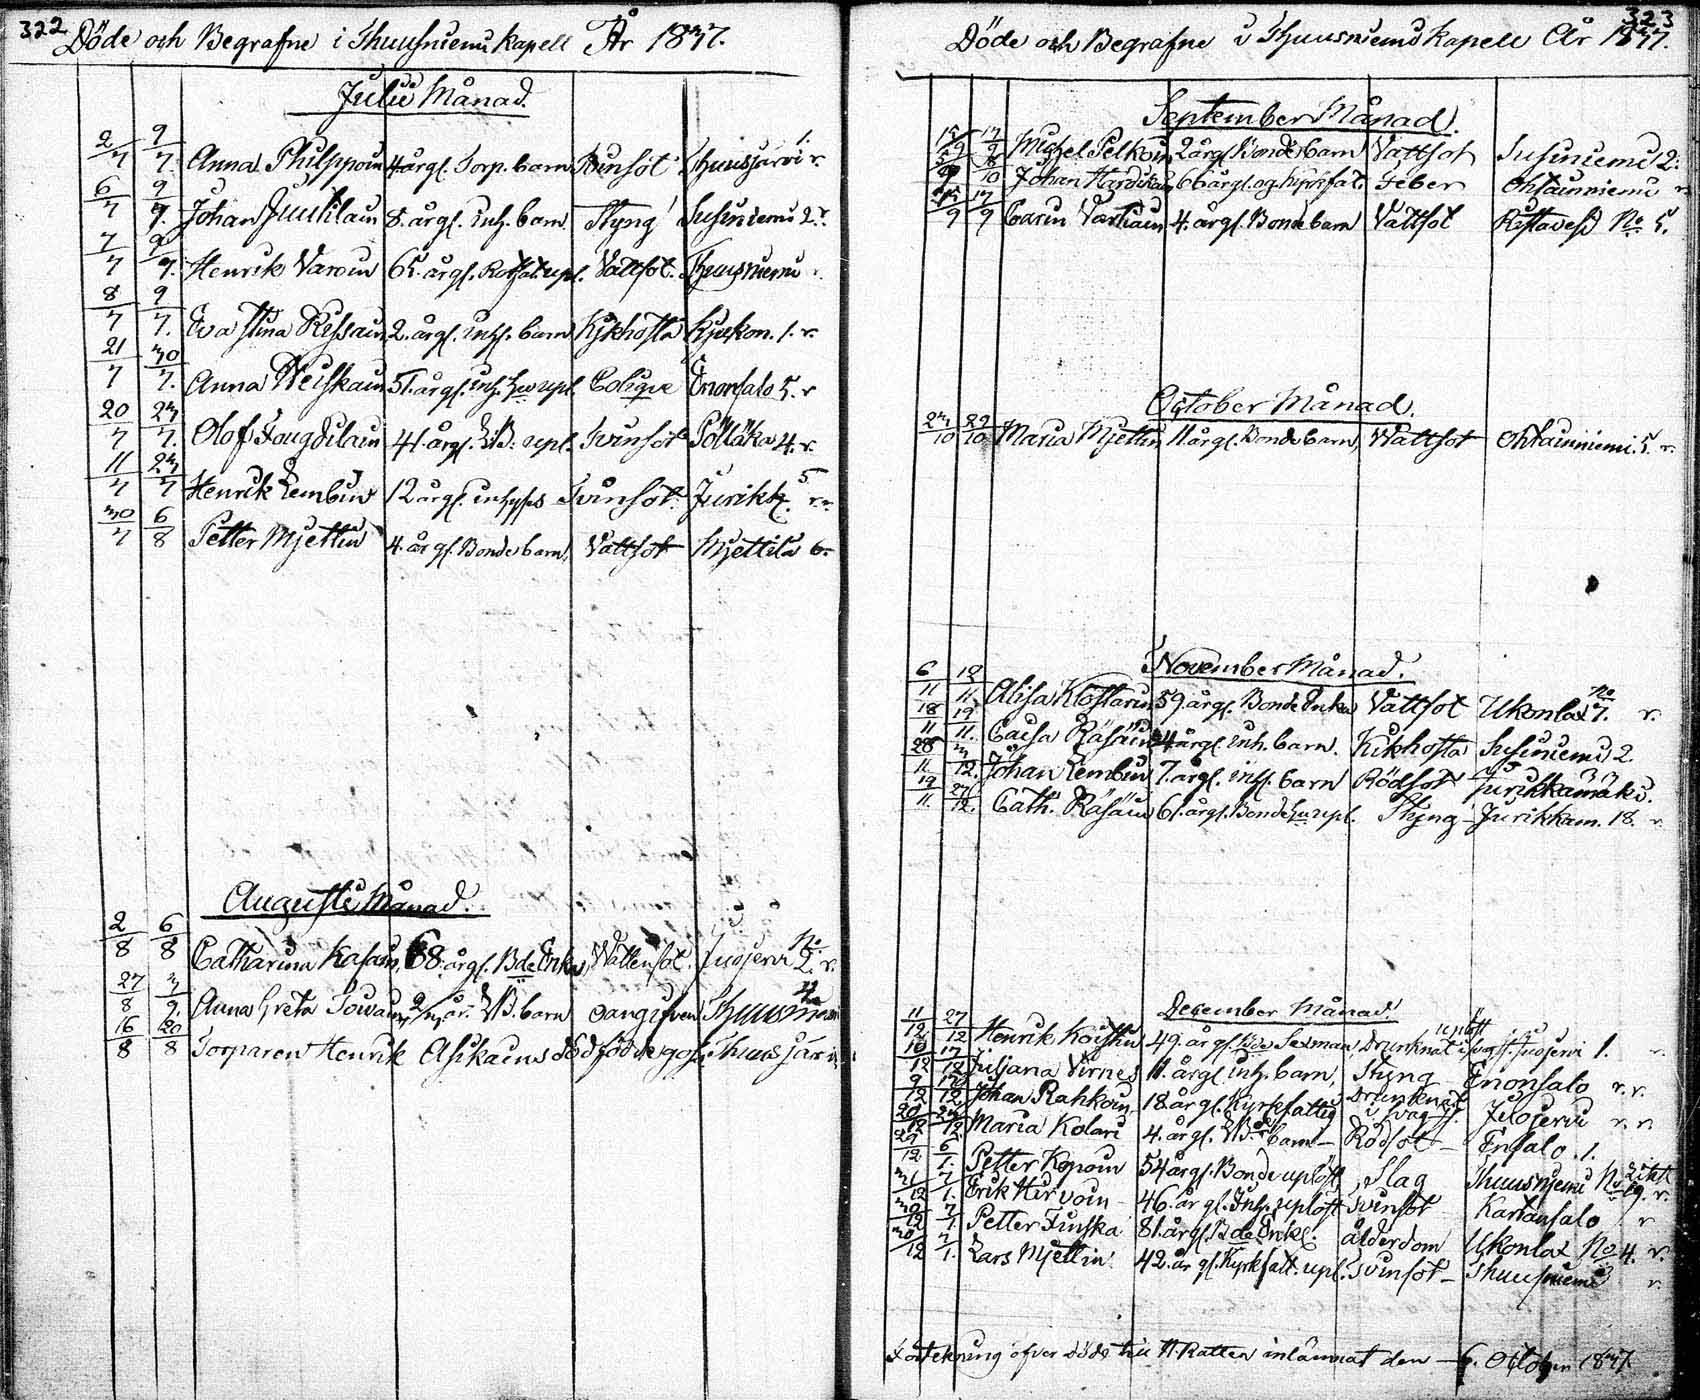 322 Döde och Begrafne i Thuusniemi Kapell År 1837.
Julii Månad.
2/7 9/7. Anna Philppoin 4 årgl. Torp. barn Tvinsot Thuusjärvi 1. r.
6/7 9/7. Johan Juutilain 8. årgl. Inh. barn Styng Susiniemi 2. r.
7/7 9/7. Henrik Varoin 65. årgl. upl. Vattsot. Thuusniemi r.
8/7 9/7. Eva Stina Rissain 2. årgl. inh. barn Kikhosta Kiukon. 1. r.
21/7 30/7. Anna Weiskain 51. årgl. inh. Hu upl. Colique Enonsalo 5. r
20/7 23/7. Olof Fougdilain 41. årgl. upl. Tvinsot Pölläkä 4. r.
11/7 23/7 Henrik Lembin 12 årgl. inhyses Tvinsot. Jurikk. 5 r.
30/7 6/8 Petter Mjettin 4. årgl. Bonde barn, Vattsot Mjettilä 6.
Augusti Månad.
2/8 6/8 Catharina Kasain, 68. årgl. Bde Enka, Vattensot. Juojervi No 2. r.
27/8 3/9. Anna Greta Towain, år. barn oangifven Thuusniemi 4
16/8 20/8 Torparen Henrik Asikains död född goss. Thuusjärvi
323
Döde och Begrafne i Thuusniemi Kapell År 1837.
September Månad.
17/9 Michel Pelkoin 2 årgl. Bonde barn Vattsot Susiniemi 2.
8/10 Johan Harikain 66 årgl. og. Kyrkfat. Feber Ohtainniemi r
17/9 Carin Vartiain 4. årgl. Bonde barn Vattsot Ristavesi No 5.
October Månad.
23/10 29/10 Maria Mjettin 11 årgl. Bonde barn, Wattsot Ohtainniemi. 5. r.
November Månad.
6/11 12/11. Alisa Klostarin 59. årgl. Bonde Enka Vattsot Ukonlax No 7. r.
18/11 19/11. Caisa Räsäin årgl. inh. barn. Kikhosta Susiniemi 2.
28/11 3/12. Johan Lembin 7. årgl. inh. barn Rödsot Jurikkamäki.
19/11. 27/12. Cath. Räsäin 61. årgl. Bonde Hu upl. Styng Jurikkam. 18. r.
December Månad.
11/12 27/12 Henrik Koistin 49. årgl. Sexman, Drunknat i svag is Juojervi 1. r.
10/12 17/12 Juljana Virnes 11. årgl. inh. barn, Styng Enonsalo r.r.
9/12 17/12 Johan Rahkoin 18. årgl. Kyrkfattig Drunknat i svag is Juojervi r.r
20/12 24/12 Maria Kolari 4. årgl. barn Rödsot Ensalo. 1.
29/12 6/1. Petter Kopoin 54 årgl. Bonde upløst, Slag Thuusniemi No 19. r.
31/12 7/1. Erik Hirvoin 46. årgl. Inh. upløst Tvinsot Kartansalo r
30/12 7/1. Petter Finska 81. årgl. Bde Enkl. ålderdom Ukonlax No 4. r.
30/12 7/1. Lars Mjettin 42. årgl. Kyrkfatt. upl. Tvinsot Thuusniemi r.
Förtekning öfver Döde till H. Rätten inlämnat den 6. October 1837.